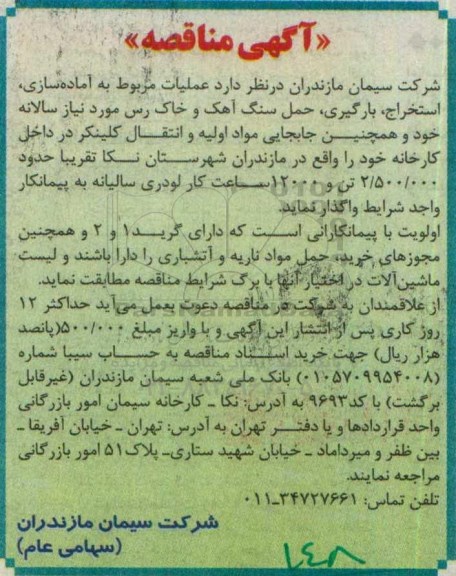 «آگهی مناقصه»
شرکت سیمان مازندران درنظر دارد عملیات مربوط به آماده‌سازی،
استخراج، بارگیری، حمل سنگ آهک و خاک رس مورد نیاز سالانه
خود و همچنین جابجایی مواد اولیه و انتقال کلینکر در داخل
کارخانه خود را واقع در مازندران شهرستان نکا تقریبا حدود
۲/۵۰۰/۰۰۰ تن و ۱۲۰۰۰ساعت کار لودری سالیانه به پیمانکار
واجد شرایط واگذار نماید.
اولویت با پیمانکارانی است که دارای گرید۱ و ۲ و همچنین
مجوزهای خرید، حمل مواد ناریه و آتشباری را دارا باشند و لیست
ماشین‌آلات در اختیار آنها با برگ شرایط مناقصه مطابقت نماید.
از علاقمندان به شرکت در مناقصه دعوت بعمل می‌آید حداکثر ۱۲
روز کاری پس از انتشار این آگهی و با واریز مبلغ ۵۰۰/۰۰۰(پانصد
هزار ریال) جهت خرید اسناد مناقصه به حساب سیبا شماره
(۰۱۰۵۷۰۹۹۵۴۰۰۸) بانک ملی شعبه سیمان مازندران (غیرقابل
برگشت) با کد۹۶۹۳ به آدرس: نکا ـ کارخانه سیمان امور بازرگانی
واحد قراردادها و یا دفتر تهران به آدرس: تهران ـ خیابان آفریقا ـ
بین ظفر و میرداماد ـ خیابان شهید ستاری‌ـ پلاک۵۱ امور بازرگانی
مراجعه نمایند.
تلفن تماس: ۳۴۷۲۷۶۶۱ـ۰۱۱
شرکت سیمان مازندران
(سهامی عام)
۱۴۵۸